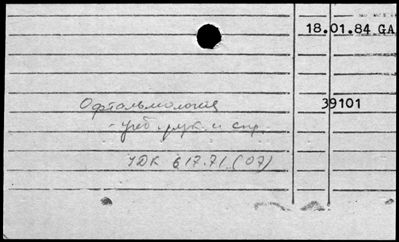 18.01.84 GA
Офтальмология 39101
- учеб. рук. и спр.
УДК 617.71 (07)